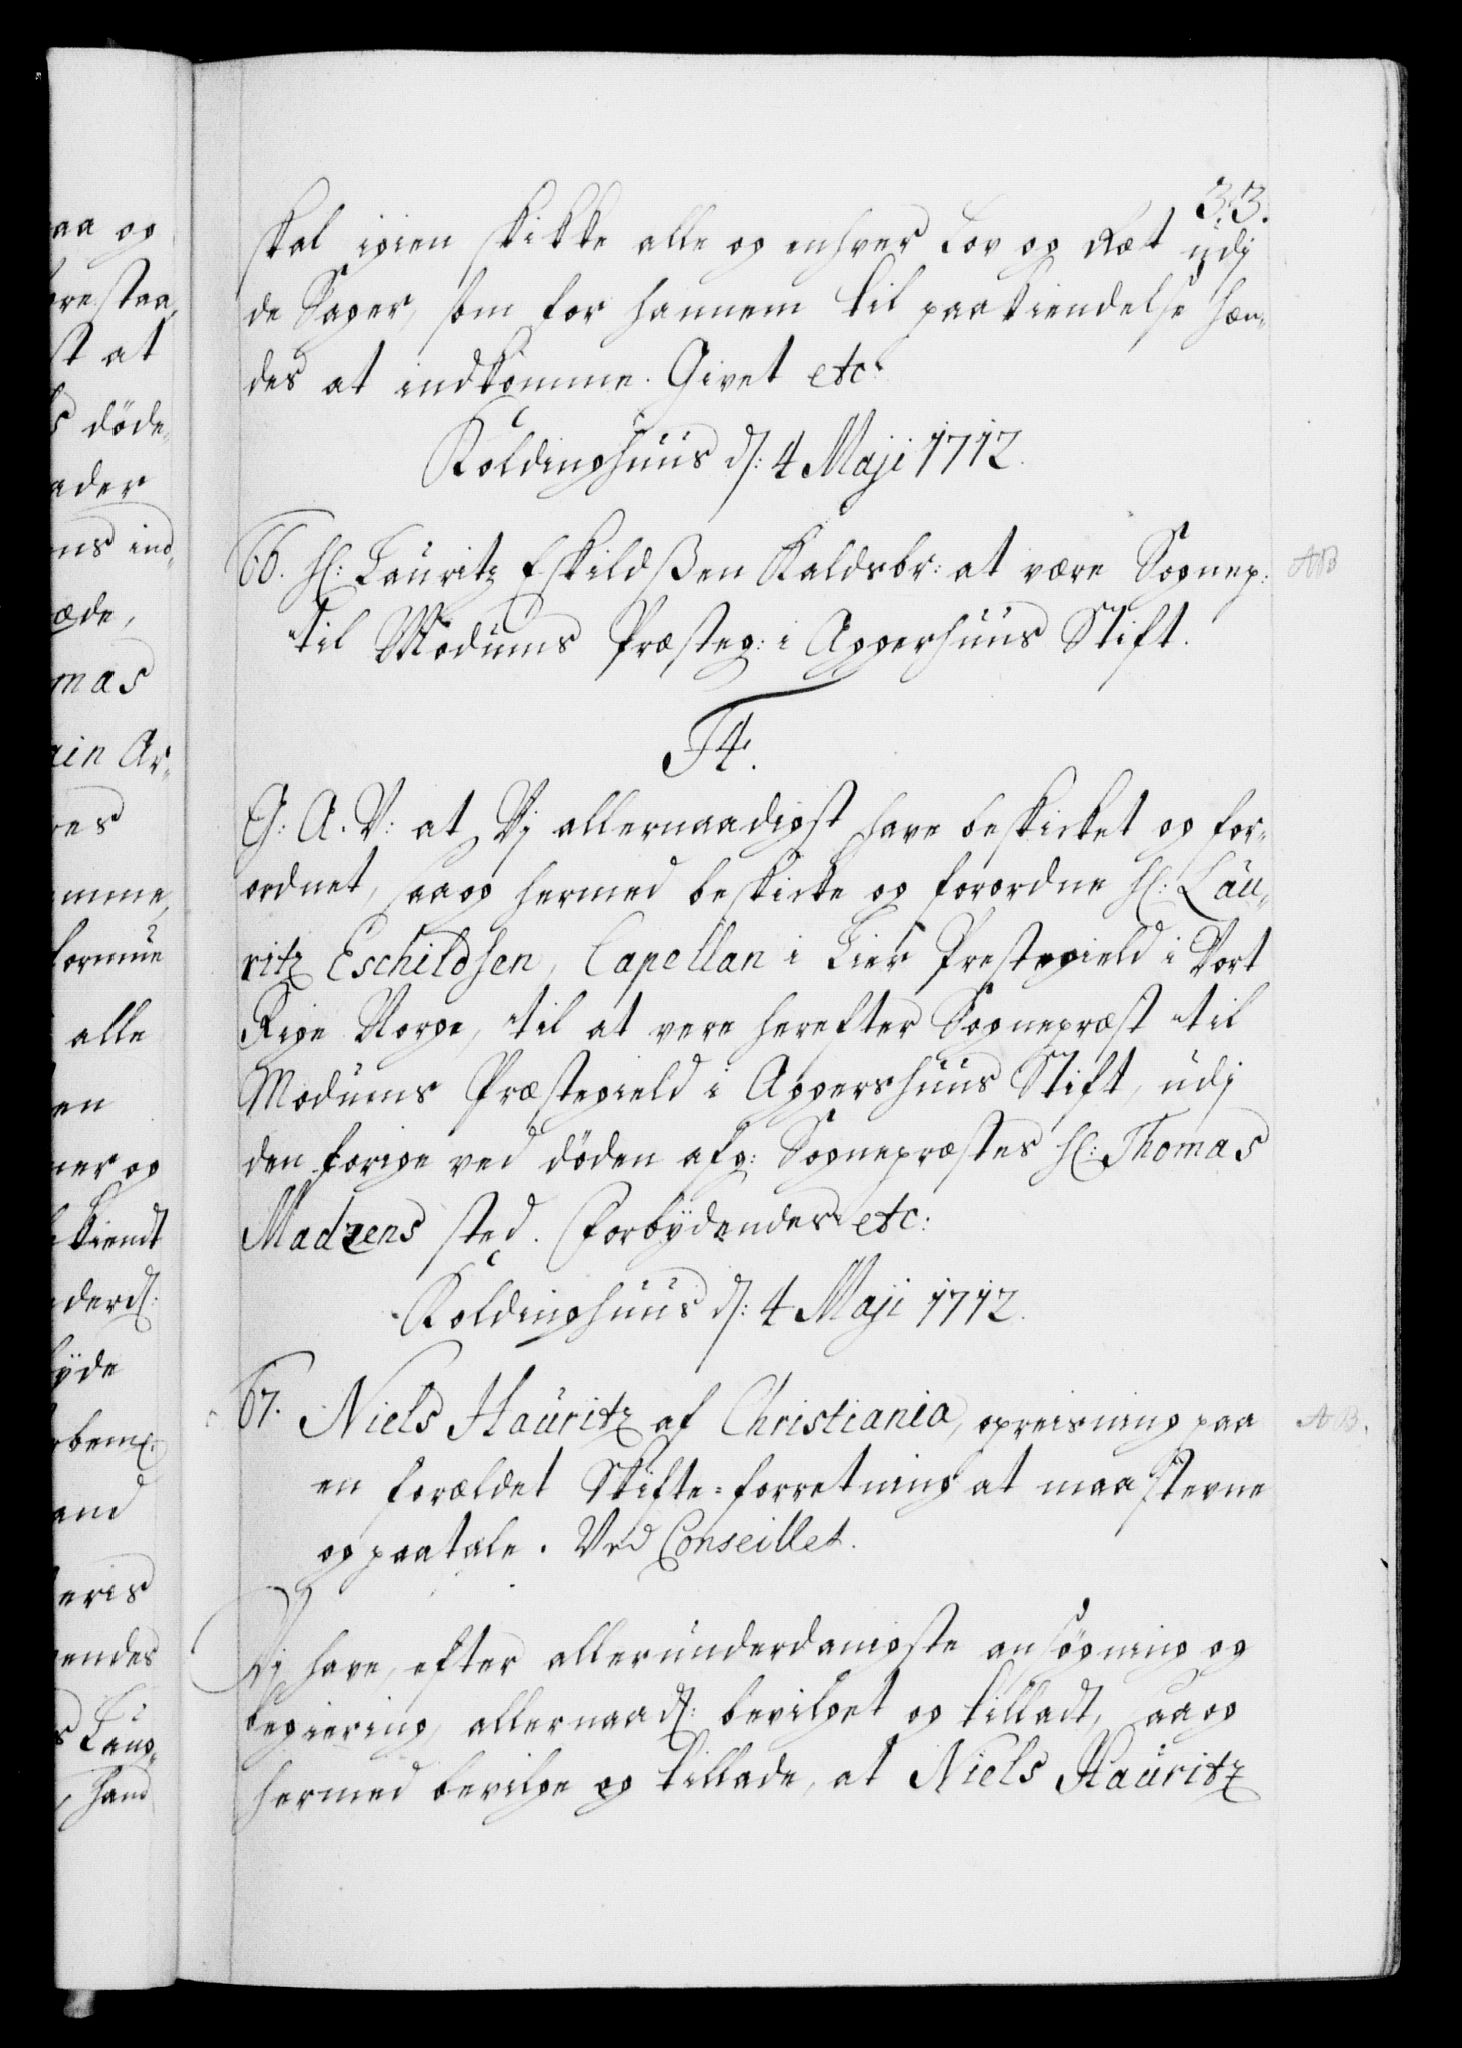 33.
skal igien skikke alle og enhver Lov og Ræt udj
de Sager, som for hannem til paakiendelse hæn-
des at indkomme. Givet etc.
Koldinghuus d: 4 Maji 1712.
66. Hr: Lauritz Eskildßen Kaldsbr: at være Sognep:
til Modums Præsteg: i Aggerhuus Stift.
F4.
G: A. V: at Vj allernaadigst have beskicket og for-
ordnet, saa og hermed beskicke og forordne Hr: Lau-
ritz Eschildsen, Capellan i Lier Prestegield i Vort
Rige Norge, til at vere herefter Sognepræst til
Modums Præstegield i Aggershuus Stift, udj
den forige ved døden afg: Sognepræstes Hr: Thomas
Madzens sted. Forbydendes etc:
Koldinghuus d: 4 Maji 1712.
67. Niels Hauritz af Christiania, opreisning paa
en forældet Skifte-forretning at maa stevne
og paatale. Ved Conseillet.
Vj have, efter allerunderdanigste ansøgning og
begiering, allernaad: bevilget og tilladt, saa og
hermed bevilge og tillade, at Niels Hauritz
AB
AB.
aa og
orestaa,
st at
s døde
ader
ns ind-
æde,
mas
ain Ar-
res
mme,
formue
alle
en
ner og
kiendt
derd:
yde
rbemt:
and
eris
endes
s Laug-
hand